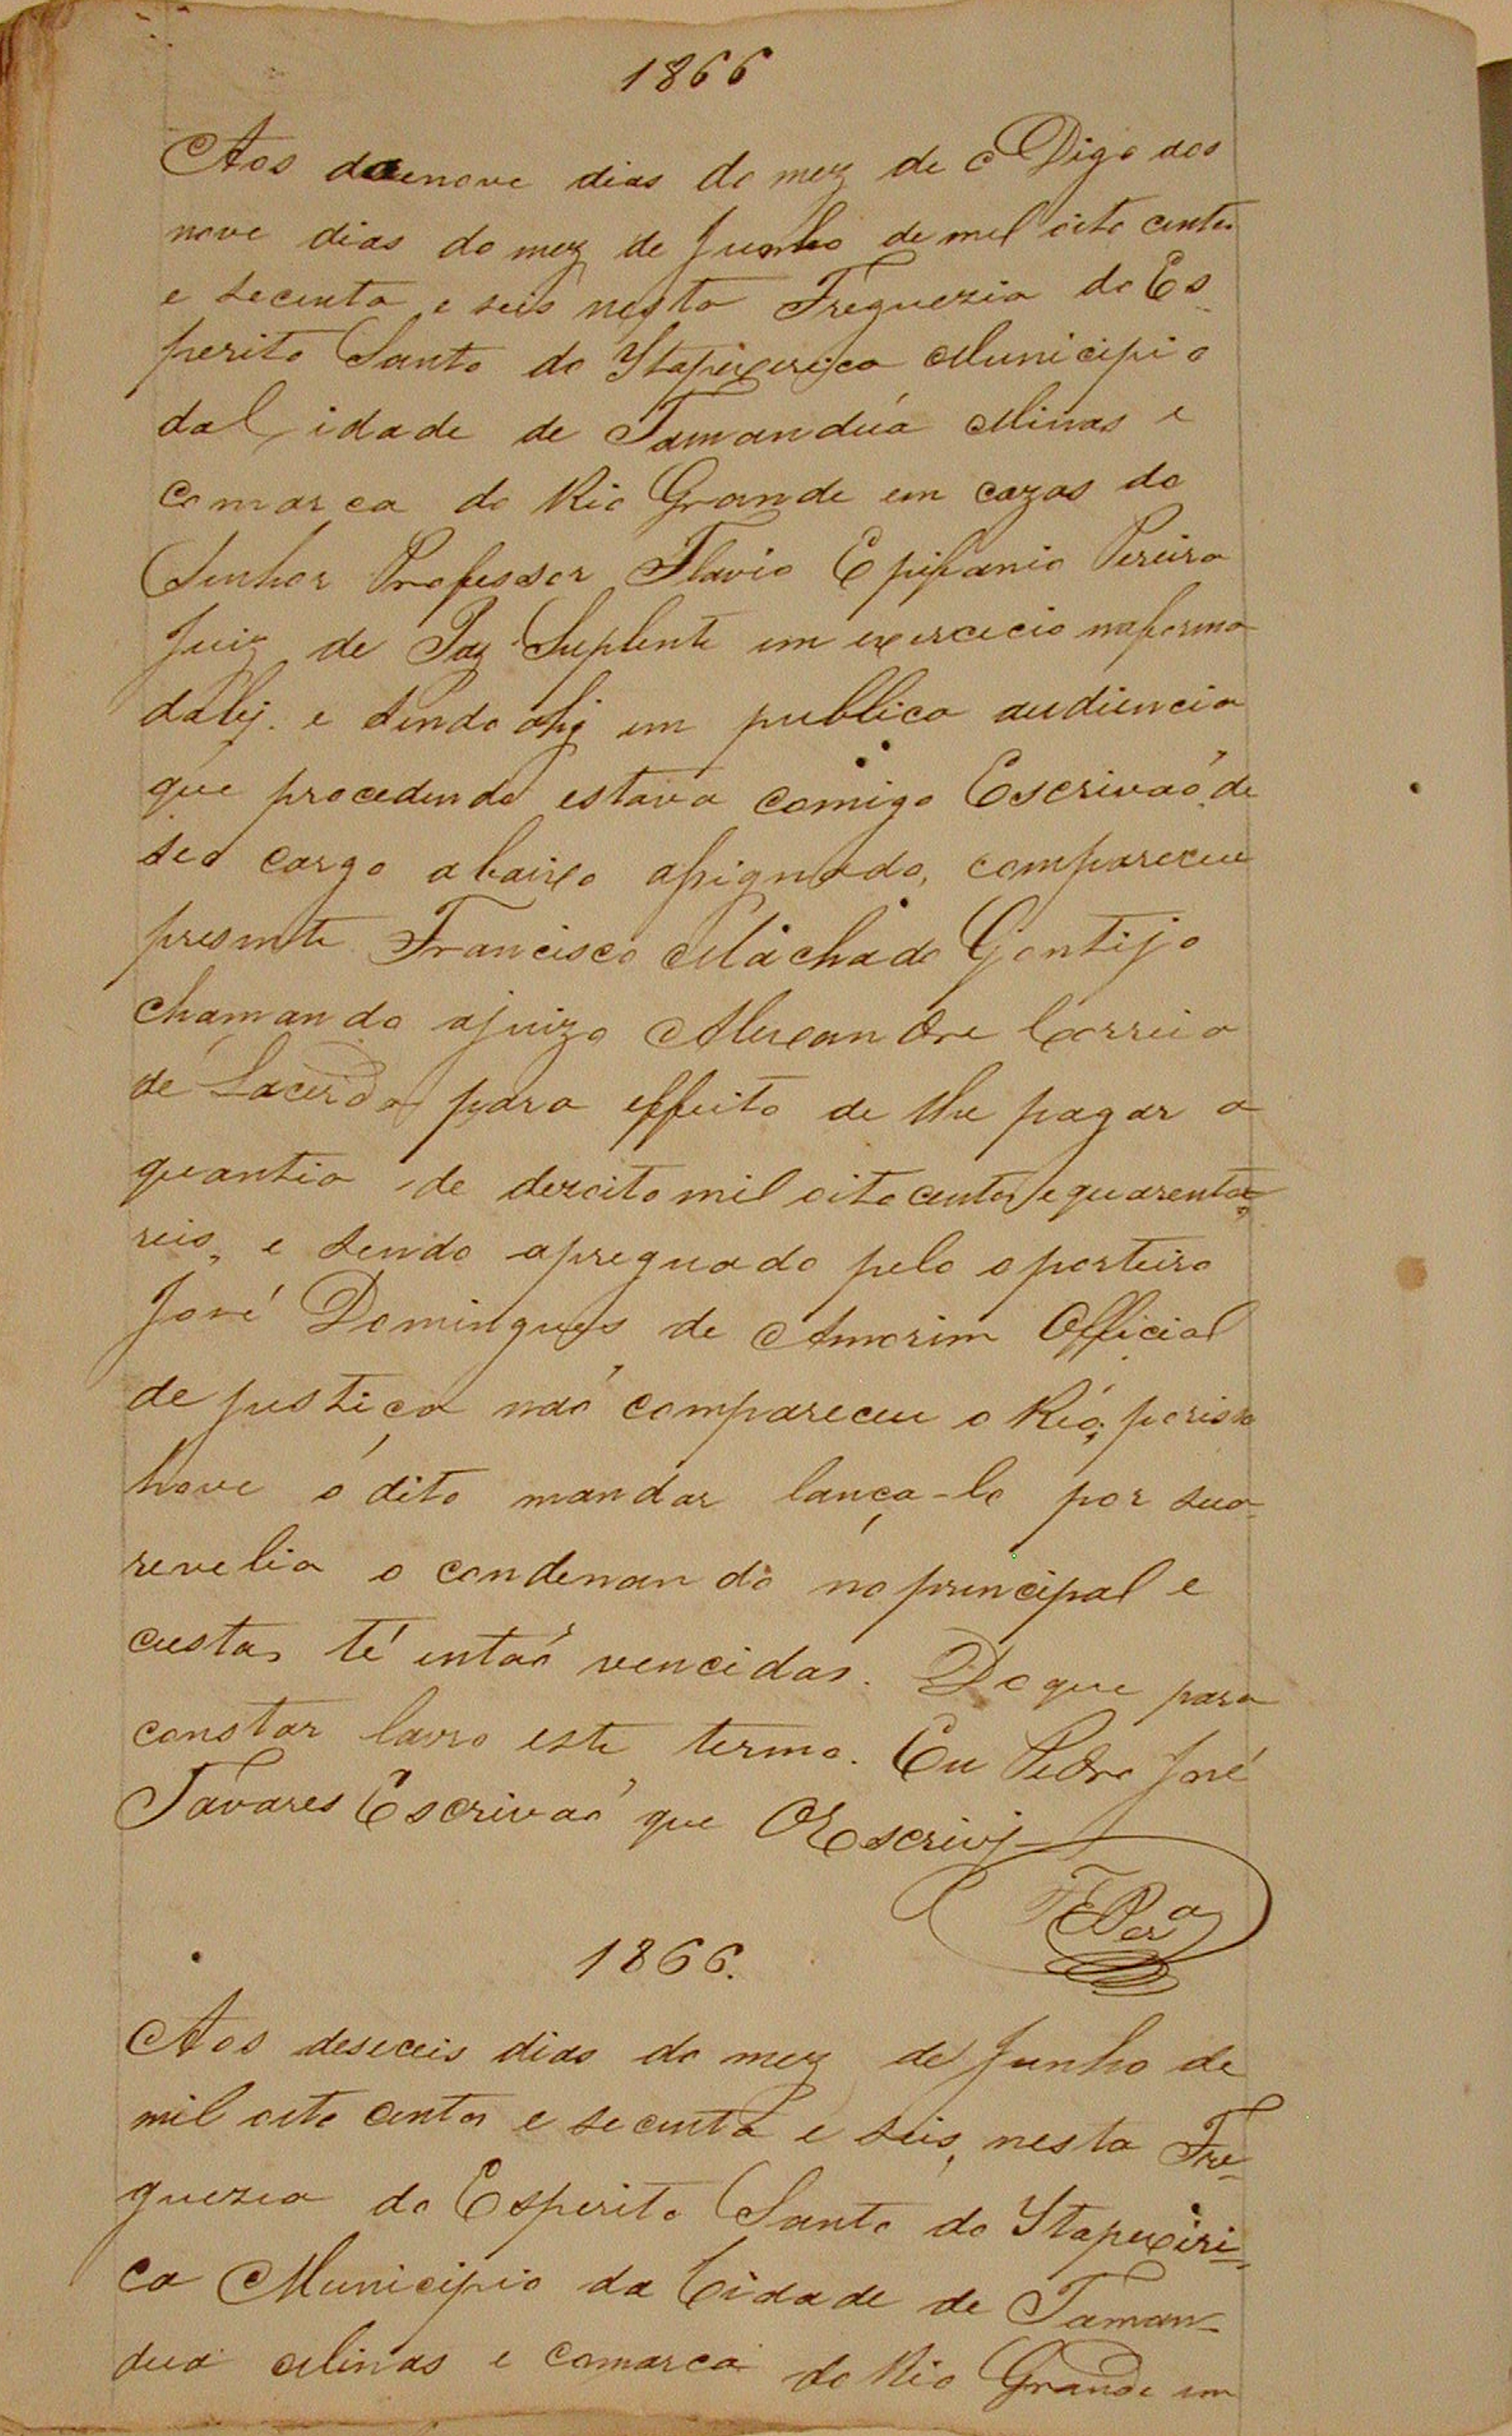 1866
Aos dazenove dias do mez de o Digo aos
nove dias do mez de Junho de mil oito centos
e secenta e seis nesta Freguezia do Es-
perito Santo do Itapixirica Municipio
da Cidade de Tamandúa Minas e
Comarca do Rio Grande em cazas do
Senhor Professor Flavio Epifanio Pereira
Juiz de Paz Suplente em exercecio na forma
da Ley. e sendo ahy em publica audiencia
que procedendo estava comigo Escrivaõ de
seo cargo abaixo assignado, compareceu
presente Francisco Machado Gontijo
chamando a juizo Alexandre Correia
de Lacerda para effeito de lhe pagar a
quantia de dezoito mil oito centos e quarenta
reis, e sendo apreguado pelo o porteiro
José Domingues de Amorim Official
de justiça naõ compareceu o Réo; por isso
hove o dito mandar lança-lo por sua
revelia o condenando no principal e
custas té entaõ vencidas. Do que para
constar lavro este termo. Eu Pedro José
Tavares Escrivaõ que O Escrivj
FEPer.a
1866.
Aos deseceis dias do mez de Junho de
mil oito centos e secenta e seis, nesta Fre-
guezia do Esperito Santo do Itapexiri-
ca Municipio da Cidade de Taman-
dua Minas e comarca do Rio Grande em